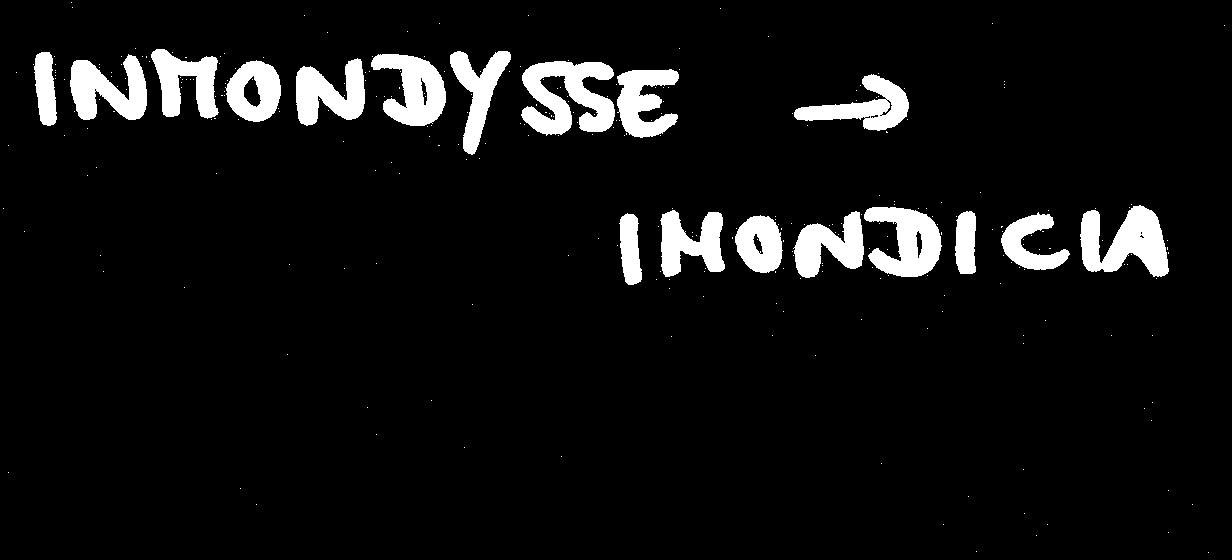 INMONDYSSE →
IMONDICIA